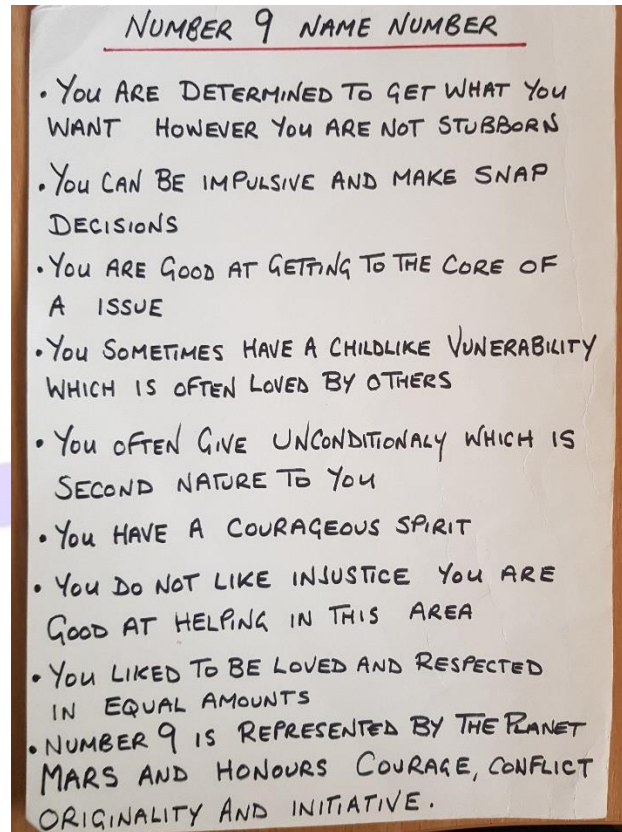 NUMBER 9 NAME NUMBER
• YOU ARE DETERMINED TO GET WHAT YOU
WANT HOWEVER YOU ARE NOT STUBBORN
• YOU CAN BE IMPULSIVE AND MAKE SNAP
DECISIONS
• YOU ARE GOOD AT GETTING TO THE CORE OF
A ISSUE
• YOU SOMETIMES HAVE A CHILDLIKE VUNERABILITY
WHICH IS OFTEN LOVED BY OTHERS
• YOU OFTEN GIVE UNCONDITIONALY WHICH IS
SECOND NATURE TO YOU
• YOU HAVE A COURAGEOUS SPIRIT
• YOU DO NOT LIKE INJUSTICE YOU ARE
GOOD AT HELPING IN THIS AREA
• YOU LIKED TO BE LOVED AND RESPECTED
IN EQUAL AMOUNTS
• NUMBER 9 IS REPRESENTED BY THE PLANET
MARS AND HONOURS COURAGE, CONFLICT
ORIGINALITY AND INITIATIVE.